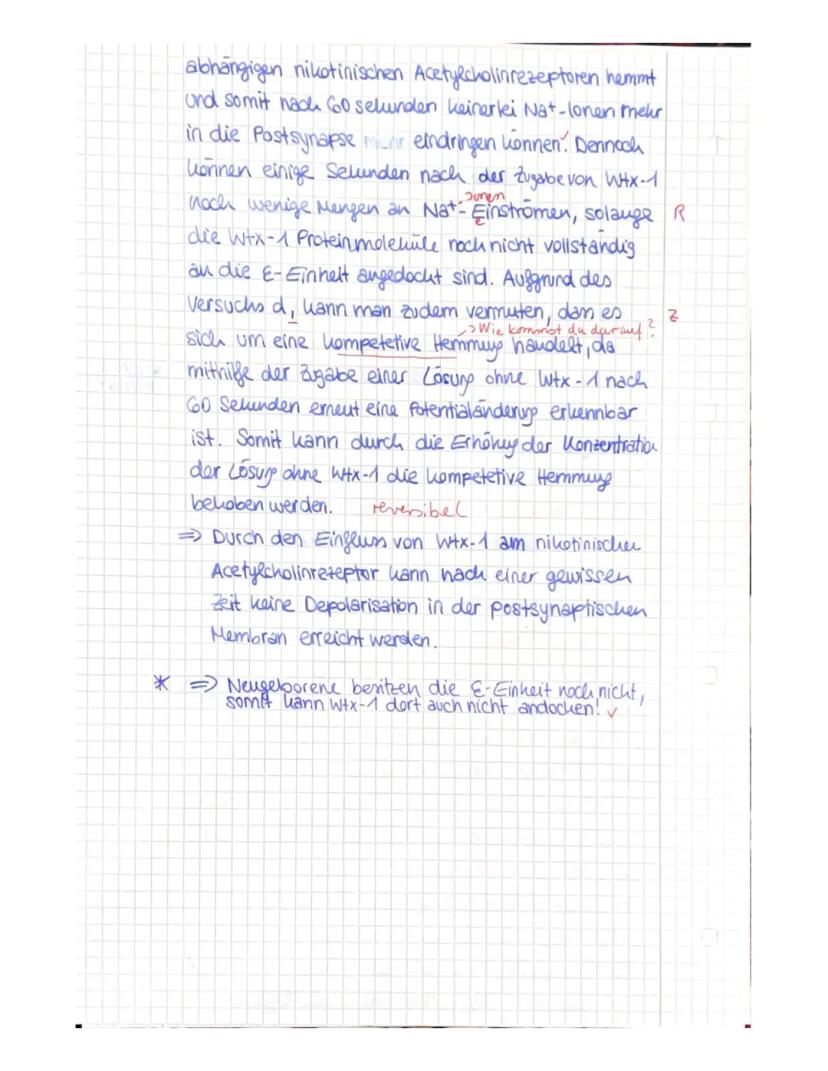 abhängigen nikotinischen Acetylcholinrezeptoren hemmt
und somit nach 60 sekunden keinerlei Na+-Ionen mehr
in die Postsynapse eindringen können. Dennoch
können einige Sekunden nach der Zugabe von Wtx-1
Ionen
noch wenige Mengen an Na+-Einströmen, solange R
die Wtx-1 Proteinmoleküle noch nicht vollständig
an die ε-Einheit angedockt sind. Aufgrund des
Versuchs d, kann man zudem vermuten, dass es Z
→ Wie kommst du darauf?
sich um eine kompetetive Hemmung handelt, da
mithilfe der Zugabe einer Lösung ohne Wtx-1 nach
60 Sekunden erneut eine Potentialänderung erkennbar
ist. Somit kann durch die Erhöhung der Konzentration
der Lösung ohne Wtx-1 die kompetetive Hemmung
behoben werden. reversibel
⇒ Durch den Einfluss von Wtx-1 am nikotinischen
Acetylcholinrezeptor kann nach einer gewissen
Zeit keine Depolarisation in der postsynaptischen
Membran erreicht werden.
* ⇒ Neugeborene besitzen die ε-Einheit noch nicht,
somit kann Wtx-1 dort auch nicht andocken! ✓